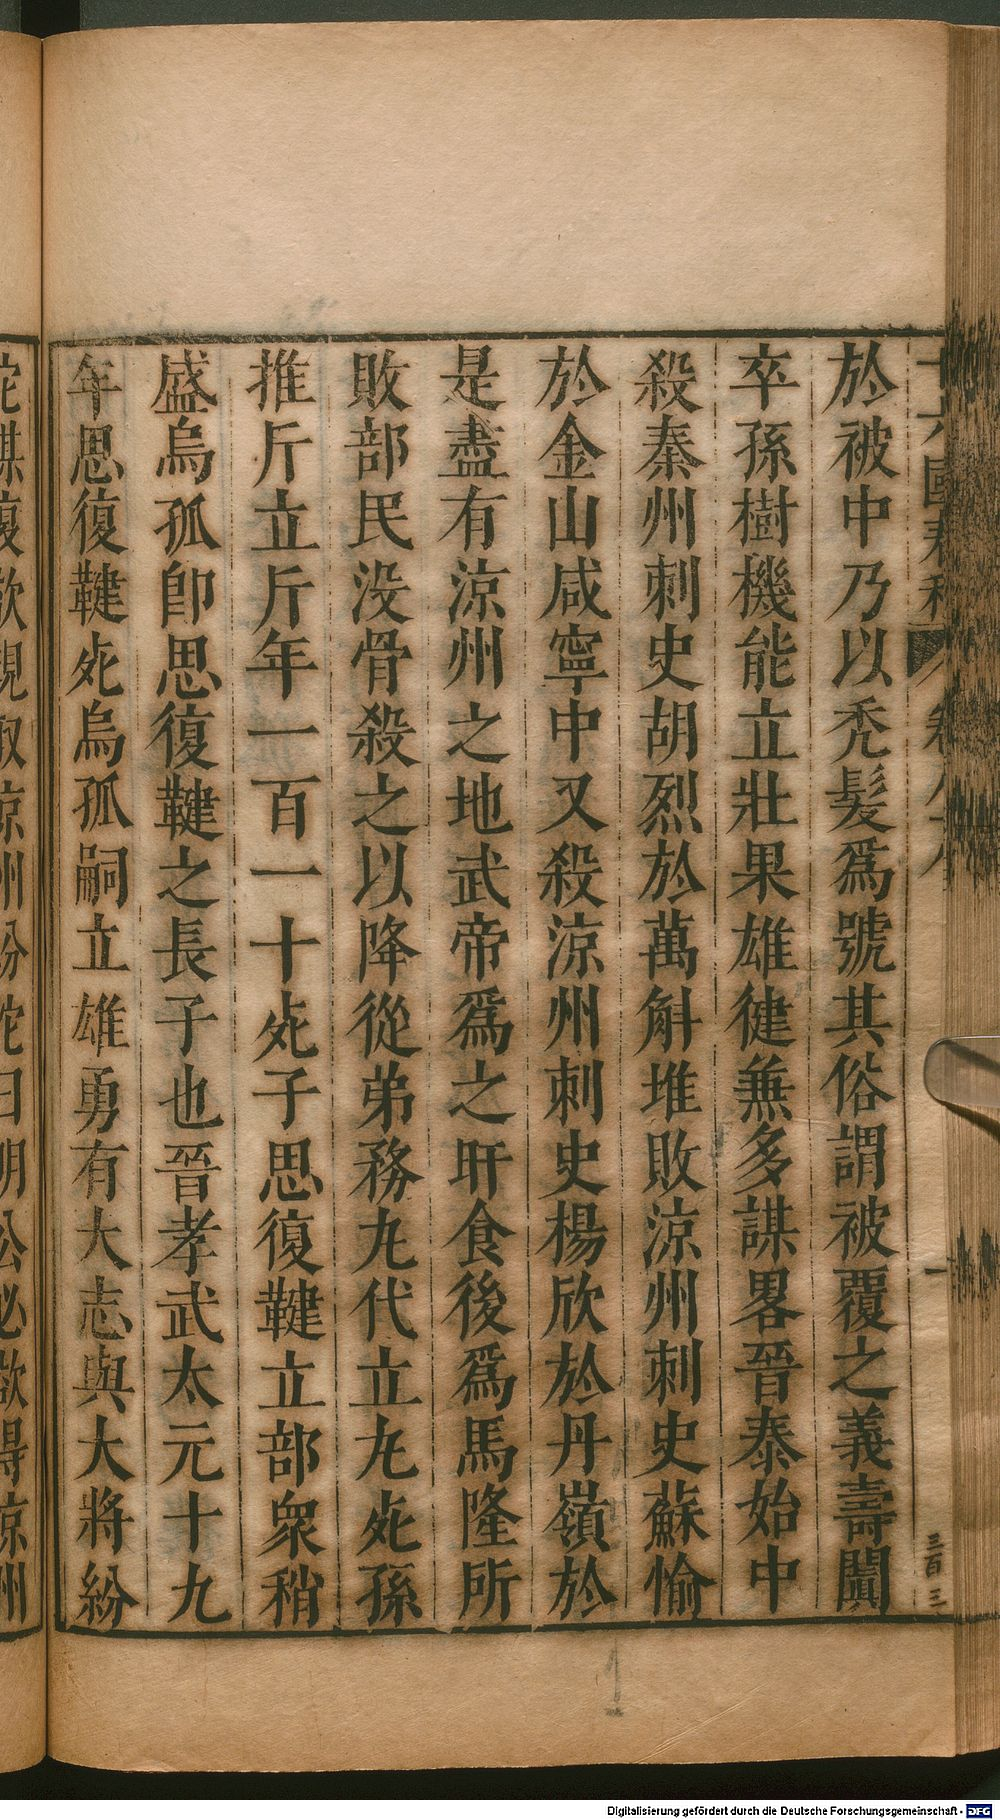 於被中乃以禿髮爲號其俗謂被覆之義壽闐
卒孫樹機能立壯果雄健兼多謀畧晉泰始中
殺秦州刺史胡烈於萬斛堆敗涼州刺史蘇愉
於金山咸寧中又殺涼州刺史楊欣於丹嶺於
是盡有涼州之地武帝爲之旰食後爲馬隆所
敗部民没骨殺之以降從弟務九代立九死孫
推斤立斤年一百一十死子思復鞬立部衆稍
盛烏孤卽思復鞬之長子也晉孝武太元十九
年思復鞬死烏孤嗣立雄勇有大志與大將紛
陀謀復欲規取涼州紛陀曰明公必欲得涼州
三百三
Digitalisierung gefördert durch die Deutsche Forschungsgemeinschaft - DFG